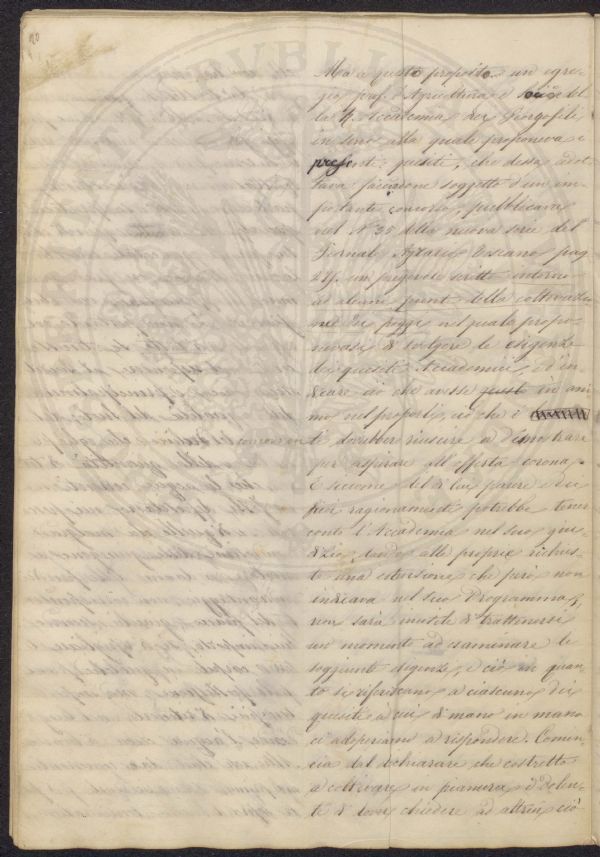 Ma a questo proposito un egre-
gio prof. d'Agricoltura e socio del
la R. Accademia dei Georgofili
in seno alla quale proponeva i
presenti quesiti, che dessa adot
tava facendone soggetto d'un im-
portante concorso, pubblicava
nel N° 35 della nuova serie del
Giornale Agrario Toscano pag
un pregevole scritto intorno
ad alcuni punti della coltivazio
ne dei poggi nel quale propo-
nevasi di svolgere le esigenze
dei quesiti Accademici, e d'in-
dicare ciò che avesse in ani
mo nel proporli, ciò che i
concorrenti dovrebbero riuscire a dimostrare
per aspirare all'offerta corona.
E siccome del di lui parere e dei
suoi ragionamenti potrebbe tener
conto l'Accademia nel suo giu-
dizio, dando alle proprie richies-
te una estensione che però non
indicava nel suo Programma,
non sarà inutile di trattenersi
un momento ad esaminare le
soggiunte esigenze, e ciò in quan
to si riferiscano a ciascuno dei
quesiti a cui di mano in mano
ci adoperiamo a rispondere. Comin-
cia dal dichiarare che costretto
a coltivare in pianura, e dolen-
te di dover chiedere ad altrui ciò